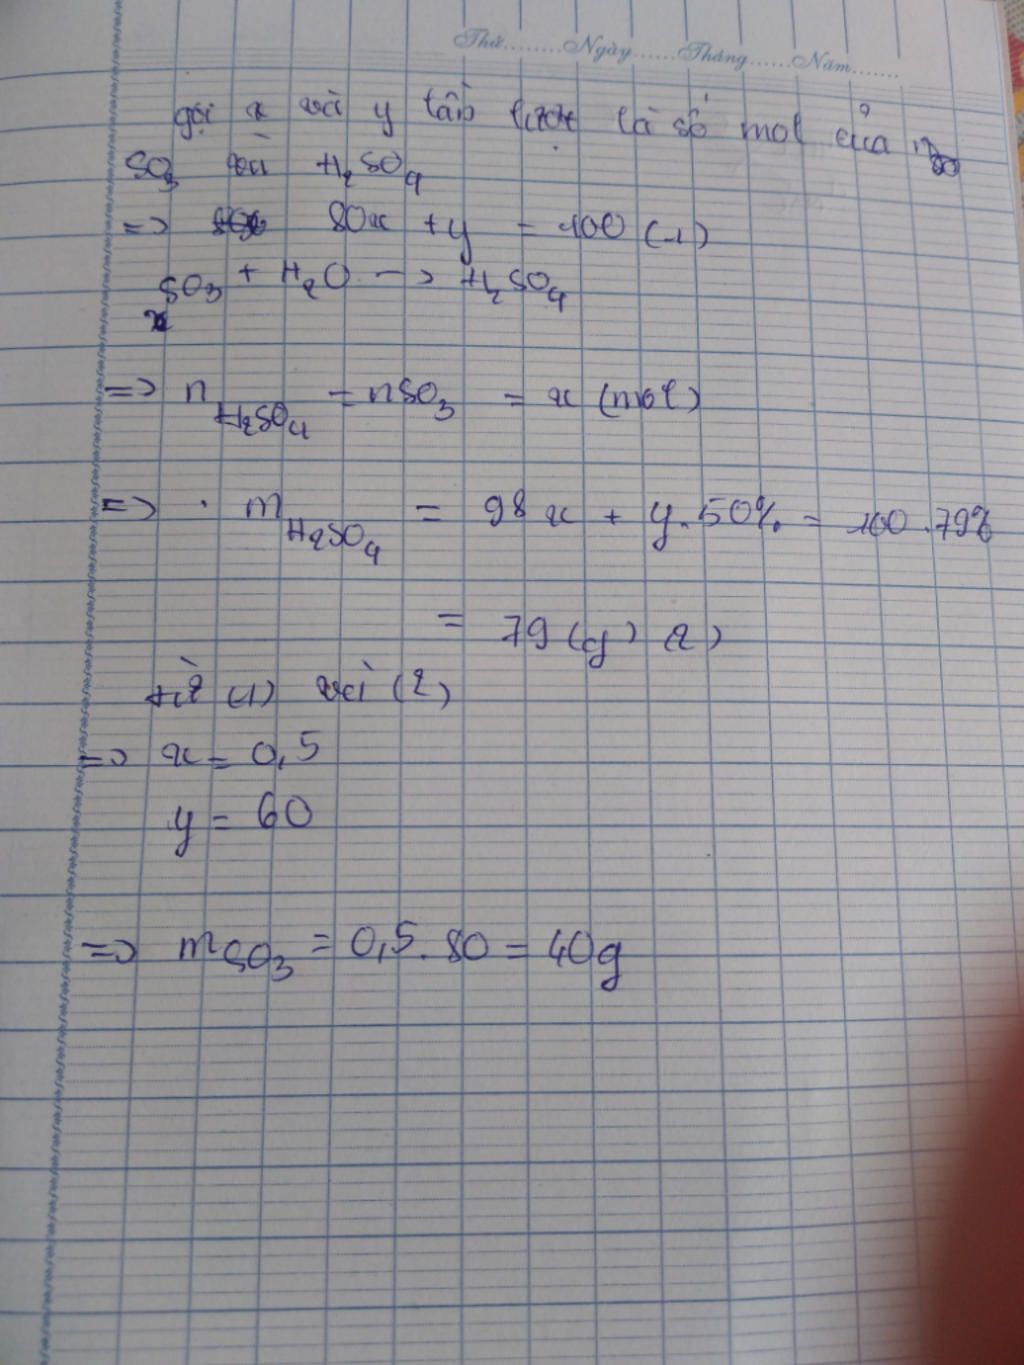 Thứ........Ngày......Tháng......Năm.......
gọi x và y lần lượt là số mol của
SO3 và H2SO4
=> 80x + y = 100 (1)
SO3 + H2O -> H2SO4
x
=> nH2SO4 = nSO3 = x (mol)
=> . mH2SO4 = 98x + y.50% = 100.79%
= 79 (g) (2)
từ (1) và (2)
=> x = 0,5
y = 60
=> mSO3 = 0,5.80 = 40g